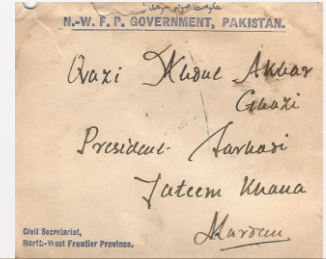 N.-W. F. P. GOVERNMENT, PAKISTAN.
Qazi Abdul Akbar
Ghazi
President Sarhadi
Yateem Khana
Mardan
Civil Secretariat,
North-West Frontier Province.